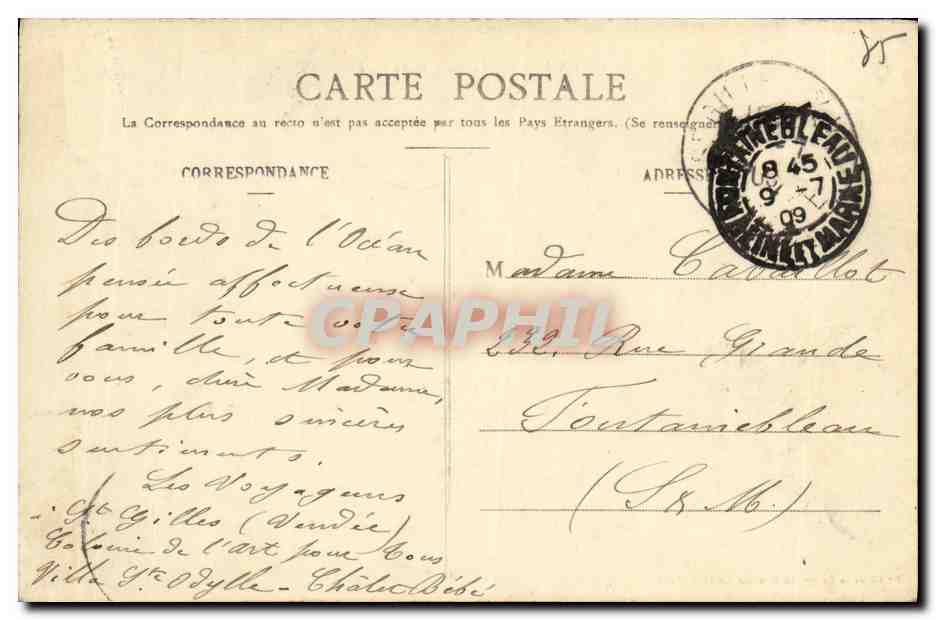 85
CARTE POSTALE
La Correspondance au recto n'est pas acceptée par tous les Pays Etrangers. (Se renseigner
CORRESPONDANCE
ADRESSE
FONTAINEBLEAU
8 45
9 - 7
09
SEINE ET MARNE
Des bords de l'Océan
pensée affectueuse
pour toute votre
famille, et pour
vous, chère Madame,
nos plus sincères
sentiments.
Les Voyageurs
à St Gilles (Vendée)
Colonie de l'art pour tous
Villa Ste Odylle - Châlet Bébé
Madame Cavaillot
232, Rue Grande
Fontainebleau
(S & M.)
CPAPHIL